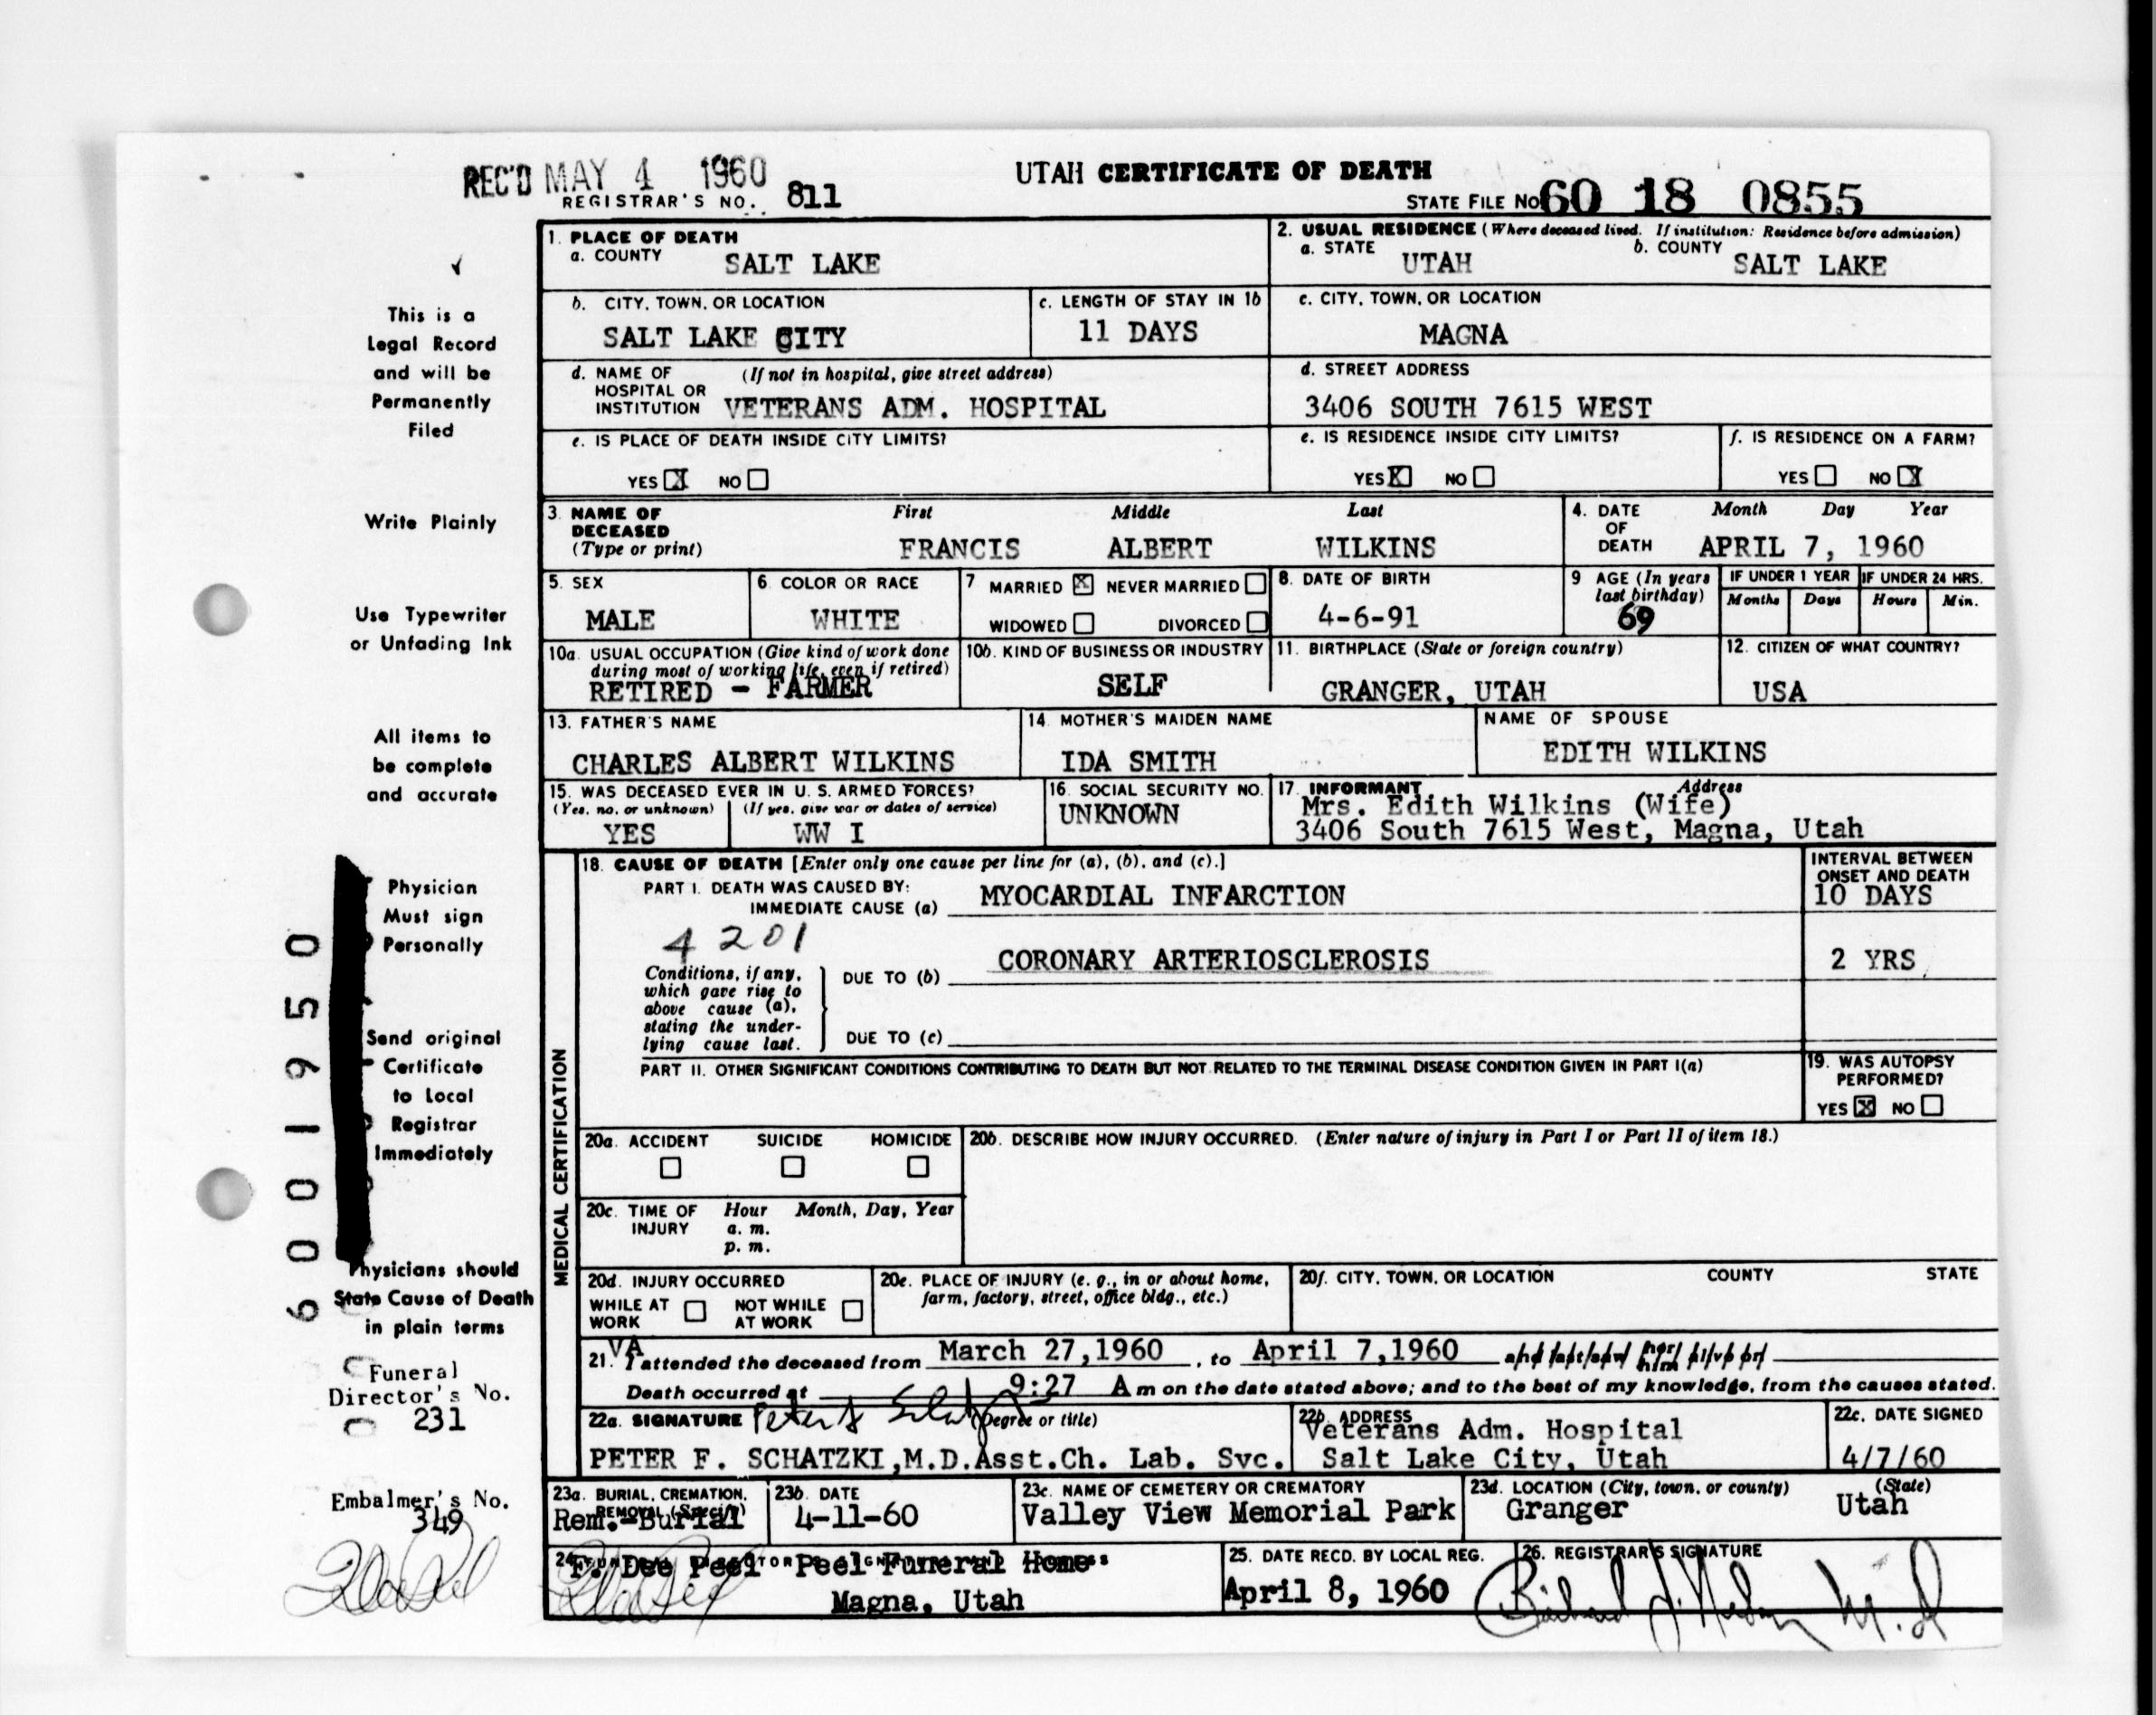 REC'D MAY 4 1960
REGISTRAR'S NO. 811
UTAH CERTIFICATE OF DEATH
STATE FILE NO 60 18 0855
This is a
Legal Record
and will be
Permanently
Filed
Write Plainly
Use Typewriter
or Unfading Ink
All items to
be complete
and accurate
Physician
Must sign
Personally
Send original
Certificate
to Local
Registrar
Immediately
Physicians should
State Cause of Death
in plain terms
Funeral
Director's No.
231
Embalmer's No.
349
6001950
1. PLACE OF DEATH
a. COUNTY SALT LAKE
2. USUAL RESIDENCE (Where deceased lived. If institution: Residence before admission)
a. STATE UTAH b. COUNTY SALT LAKE
b. CITY, TOWN, OR LOCATION
SALT LAKE CITY
c. LENGTH OF STAY IN 1b
11 DAYS
c. CITY, TOWN, OR LOCATION
MAGNA
d. NAME OF (If not in hospital, give street address)
HOSPITAL OR
INSTITUTION VETERANS ADM. HOSPITAL
d. STREET ADDRESS
3406 SOUTH 7615 WEST
e. IS PLACE OF DEATH INSIDE CITY LIMITS?
YES X NO
e. IS RESIDENCE INSIDE CITY LIMITS?
YES X NO
f. IS RESIDENCE ON A FARM?
YES NO X
3. NAME OF DECEASED (Type or print)
First Middle Last
FRANCIS ALBERT WILKINS
4. DATE OF DEATH
Month Day Year
APRIL 7, 1960
5. SEX
MALE
6. COLOR OR RACE
WHITE
7 MARRIED X NEVER MARRIED
WIDOWED DIVORCED
8. DATE OF BIRTH
4-6-91
9 AGE (In years
last birthday)
69
IF UNDER 1 YEAR
Months Days
IF UNDER 24 HRS.
Hours Min.
10a. USUAL OCCUPATION (Give kind of work done
during most of working life, even if retired)
RETIRED - FARMER
10b. KIND OF BUSINESS OR INDUSTRY
SELF
11. BIRTHPLACE (State or foreign country)
GRANGER, UTAH
12. CITIZEN OF WHAT COUNTRY?
USA
13. FATHER'S NAME
CHARLES ALBERT WILKINS
14. MOTHER'S MAIDEN NAME
IDA SMITH
NAME OF SPOUSE
EDITH WILKINS
15. WAS DECEASED EVER IN U. S. ARMED FORCES?
(Yes, no, or unknown) (If yes, give war or dates of service)
YES WW I
16. SOCIAL SECURITY NO.
UNKNOWN
17. INFORMANT Address
Mrs. Edith Wilkins (Wife)
3406 South 7615 West, Magna, Utah
MEDICAL CERTIFICATION
18. CAUSE OF DEATH [Enter only one cause per line for (a), (b), and (c).]
INTERVAL BETWEEN
ONSET AND DEATH
PART I. DEATH WAS CAUSED BY:
IMMEDIATE CAUSE (a) MYOCARDIAL INFARCTION 10 DAYS
4201
Conditions, if any,
which gave rise to
above cause (a),
stating the under-
lying cause last.
DUE TO (b) CORONARY ARTERIOSCLEROSIS 2 YRS
DUE TO (c)
PART II. OTHER SIGNIFICANT CONDITIONS CONTRIBUTING TO DEATH BUT NOT RELATED TO THE TERMINAL DISEASE CONDITION GIVEN IN PART I(a)
19. WAS AUTOPSY
PERFORMED?
YES X NO
20a. ACCIDENT SUICIDE HOMICIDE
20b. DESCRIBE HOW INJURY OCCURRED. (Enter nature of injury in Part I or Part II of item 18.)
20c. TIME OF INJURY
Hour Month, Day, Year
a. m.
p. m.
20d. INJURY OCCURRED
WHILE AT WORK NOT WHILE AT WORK
20e. PLACE OF INJURY (e. g., in or about home,
farm, factory, street, office bldg., etc.)
20f. CITY, TOWN, OR LOCATION COUNTY STATE
21. VA I attended the deceased from March 27,1960, to April 7,1960 and last saw her him alive on
Death occurred at 9:27 A m on the date stated above; and to the best of my knowledge, from the causes stated.
22a. SIGNATURE (Degree or title)
PETER F. SCHATZKI,M.D.Asst.Ch. Lab. Svc.
22b. ADDRESS
Veterans Adm. Hospital
Salt Lake City, Utah
22c. DATE SIGNED
4/7/60
23a. BURIAL, CREMATION,
REMOVAL (Specify)
Rem.-Burial
23b. DATE
4-11-60
23c. NAME OF CEMETERY OR CREMATORY
Valley View Memorial Park
23d. LOCATION (City, town, or county) (State)
Granger Utah
24.
F. Dee Peel Peel Funeral Home
Magna, Utah
25. DATE RECD. BY LOCAL REG.
April 8, 1960
26. REGISTRAR'S SIGNATURE